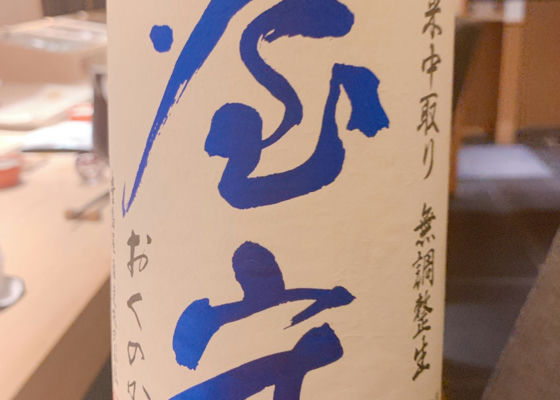 米中取り 無調整生
屋守
おくのか